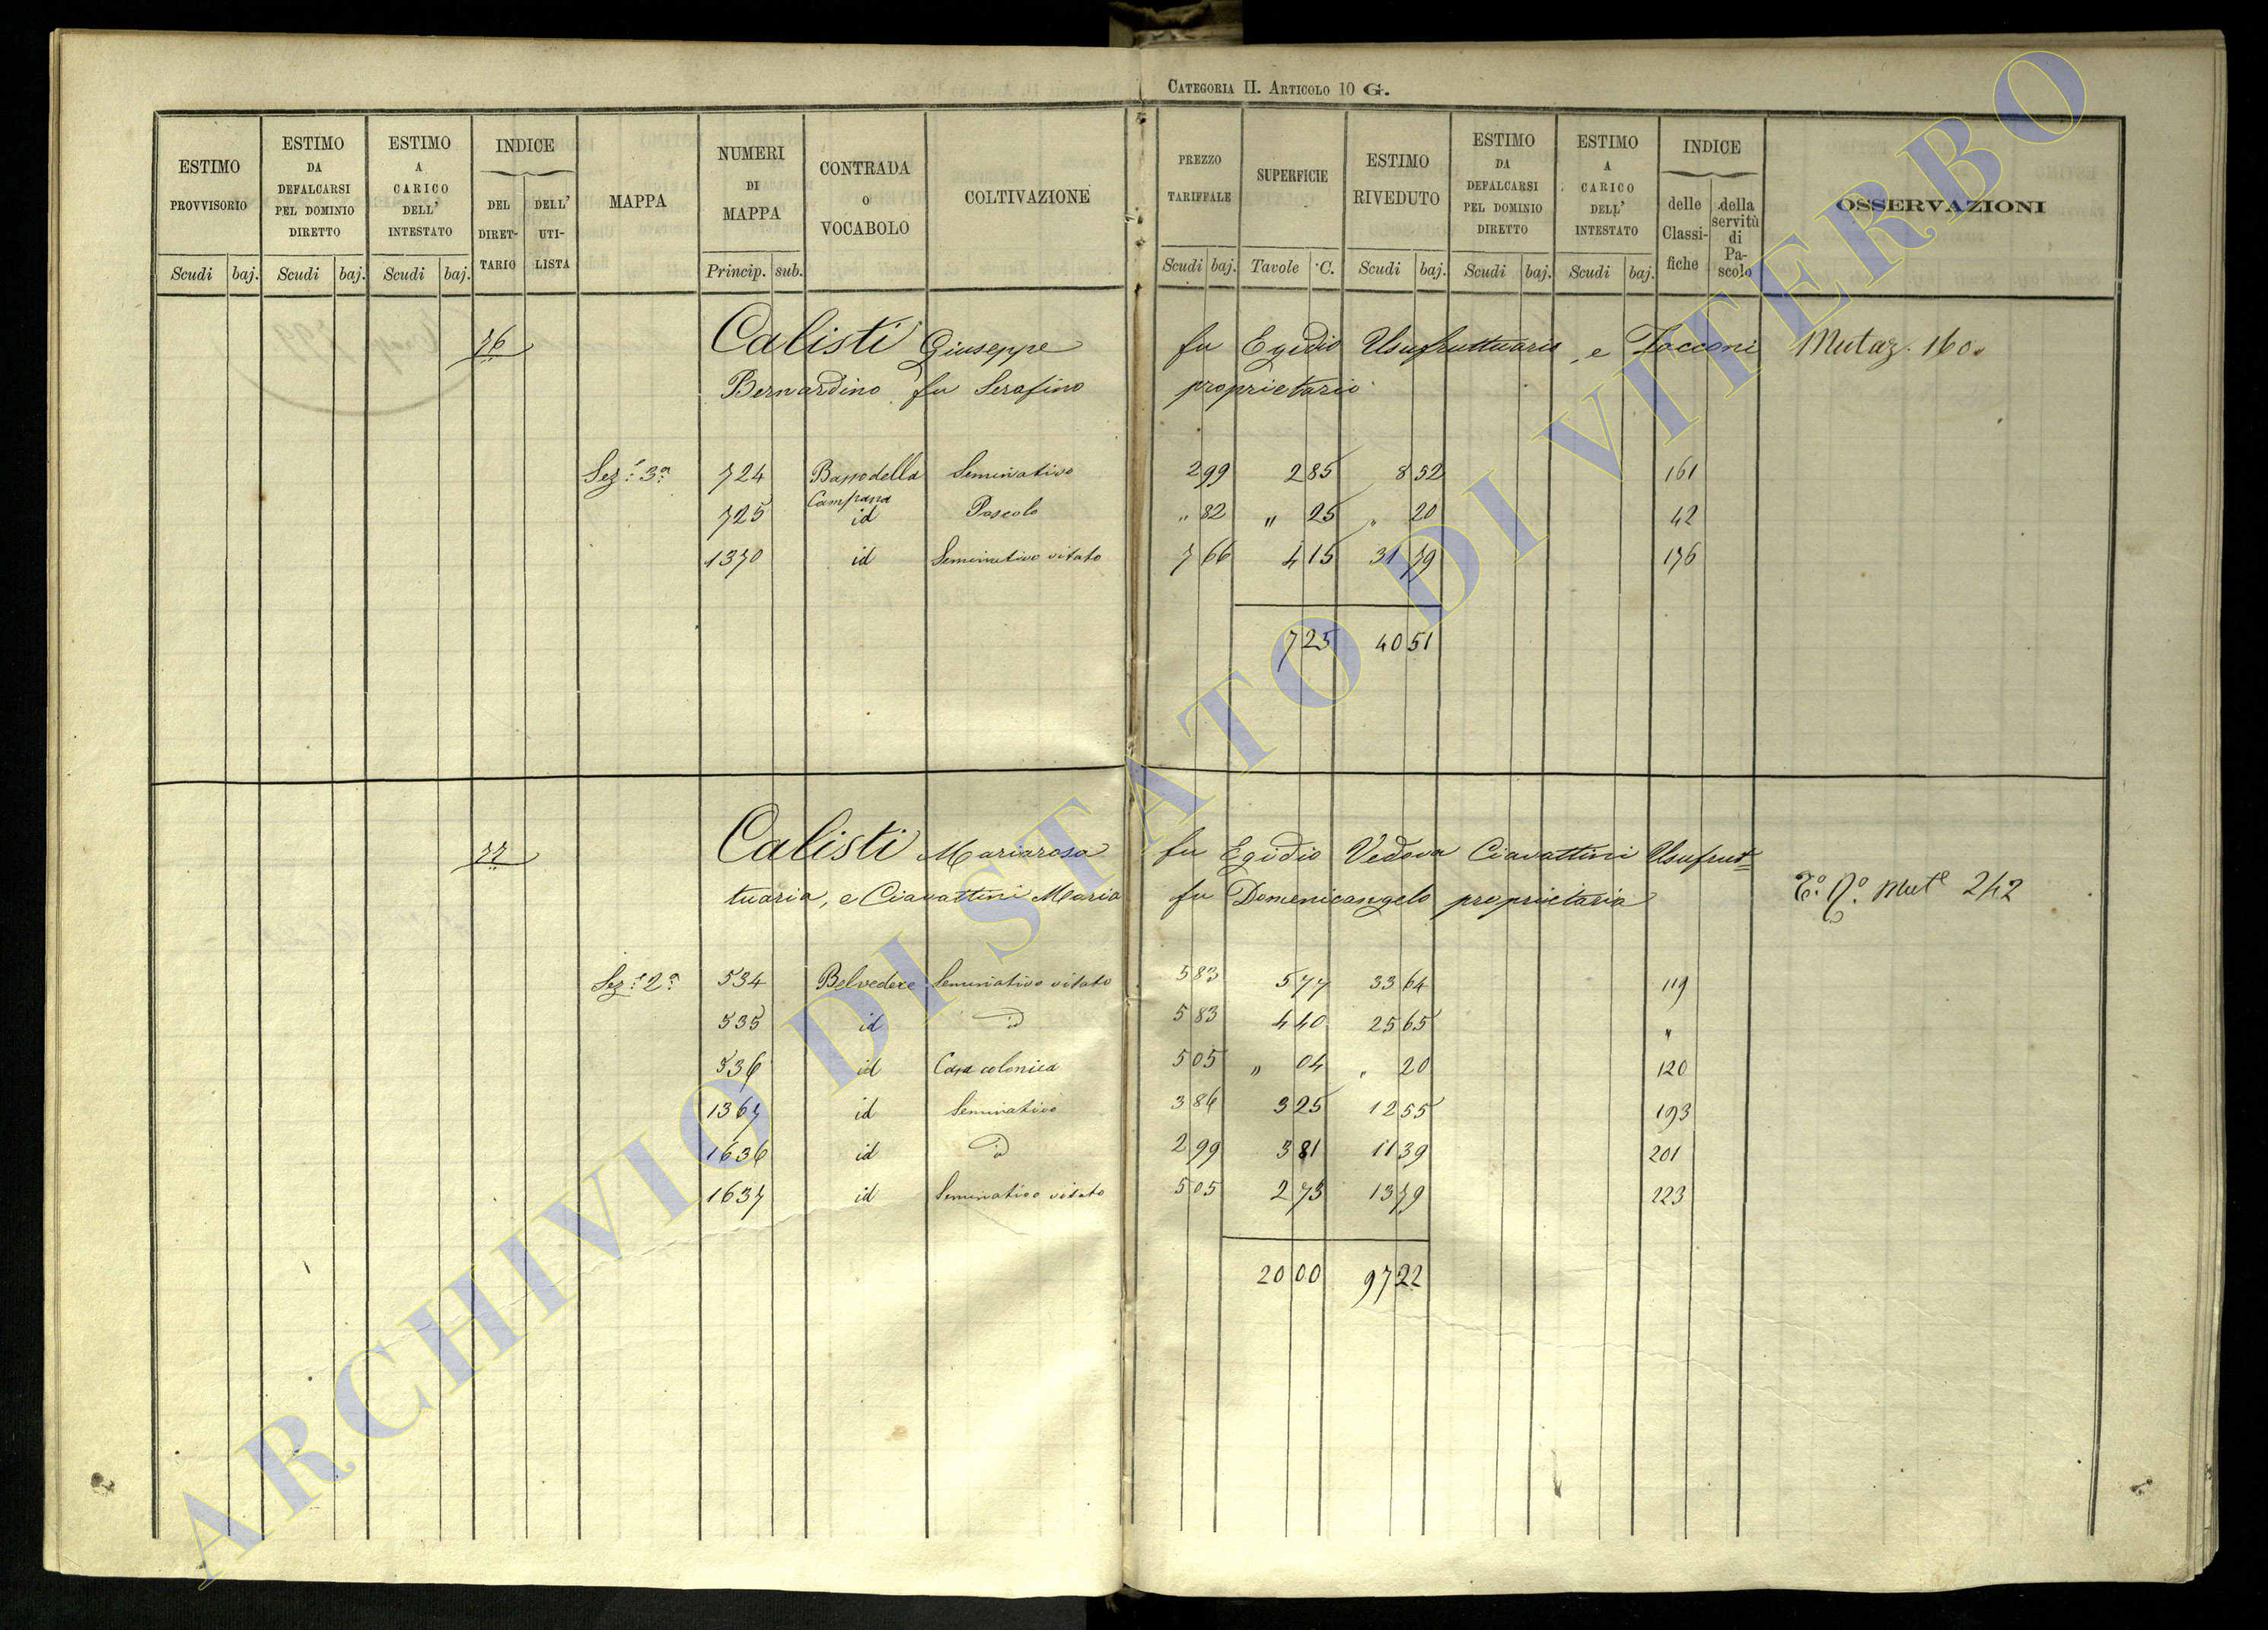 CATEGORIA II. ARTICOLO 10 G.
ESTIMO PROVVISORIO Scudi baj.
ESTIMO DA DEFALCARSI PEL DOMINIO DIRETTO Scudi baj.
ESTIMO A CARICO DELL' INTESTATO Scudi baj.
INDICE DEL DIRETTARIO DELL' UTILISTA
MAPPA
NUMERI DI MAPPA Princip. sub.
CONTRADA O VOCABOLO
COLTIVAZIONE
PREZZO TARIFFALE Scudi baj.
SUPERFICIE Tavole C.
ESTIMO RIVEDUTO Scudi baj.
ESTIMO DA DEFALCARSI PEL DOMINIO DIRETTO Scudi baj.
ESTIMO A CARICO DELL' INTESTATO Scudi baj.
INDICE delle Classifiche della servitù di Pascolo
OSSERVAZIONI
76 Calisti Giuseppe fu Egidio Usufruttuario, e Zacconi Mutaz. 160.
Bernardino fu Serafino proprietario
Sez.e 3a 724 Bappodella Campana Seminativo 2 99 2 85 8 52 161
725 id Pascolo " 82 " 25 " 20 42
1370 id Seminativo vitato 7 66 4 15 31 79 176
7 25 40 51
77 Calisti Mariarosa fu Egidio Vedova Ciavattini Usufrut=
tuaria, e Ciavattini Maria fu Domenicangelo proprietaria Mute 242
Sez.e 2a 534 Belvedere Seminativo vitato 5 83 5 77 33 64 119
535 id id 5 83 4 40 25 65 "
536 id Casa colonica 5 05 " 04 " 20 120
1367 id Seminativo 3 86 3 25 12 55 193
1636 id id 2 99 3 81 11 39 201
1637 id Seminativo vitato 5 05 2 73 13 79 223
20 00 97 22
ARCHIVIO DI STATO DI VITERBO